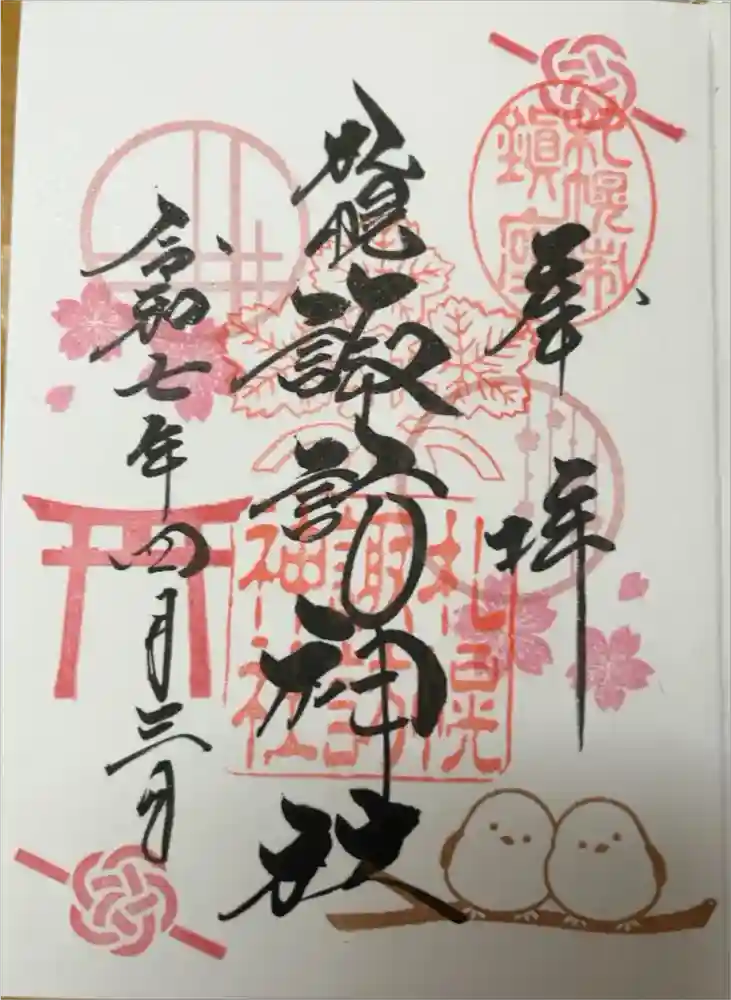 札幌市
鎮座
奉拝
札幌諏訪神社
札幌
諏訪
神社
令和七年四月三日